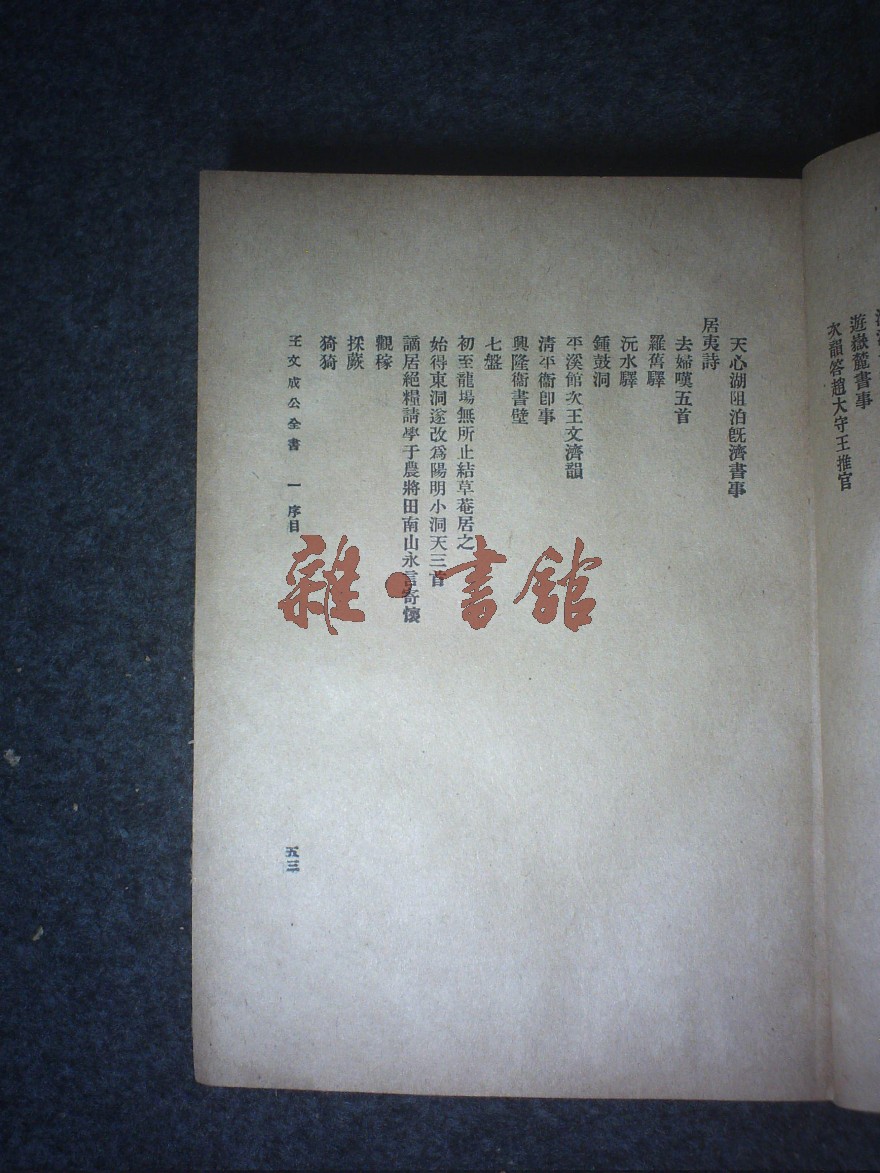 遊嶽麓書事
次韻答趙大守王推官
天心湖阻泊旣濟書事
居夷詩
去婦嘆五首
羅舊驛
沅水驛
鍾鼓洞
平溪館次王文濟韻
清平衞卽事
興隆衞書壁
七盤
初至龍場無所止結草菴居之
始得東洞遂改爲陽明小洞天三首
謫居絕糧請學于農將田南山永言寄懷
觀稼
採蕨
猗猗
王文成公全書 一 序目
五三
雜·書館